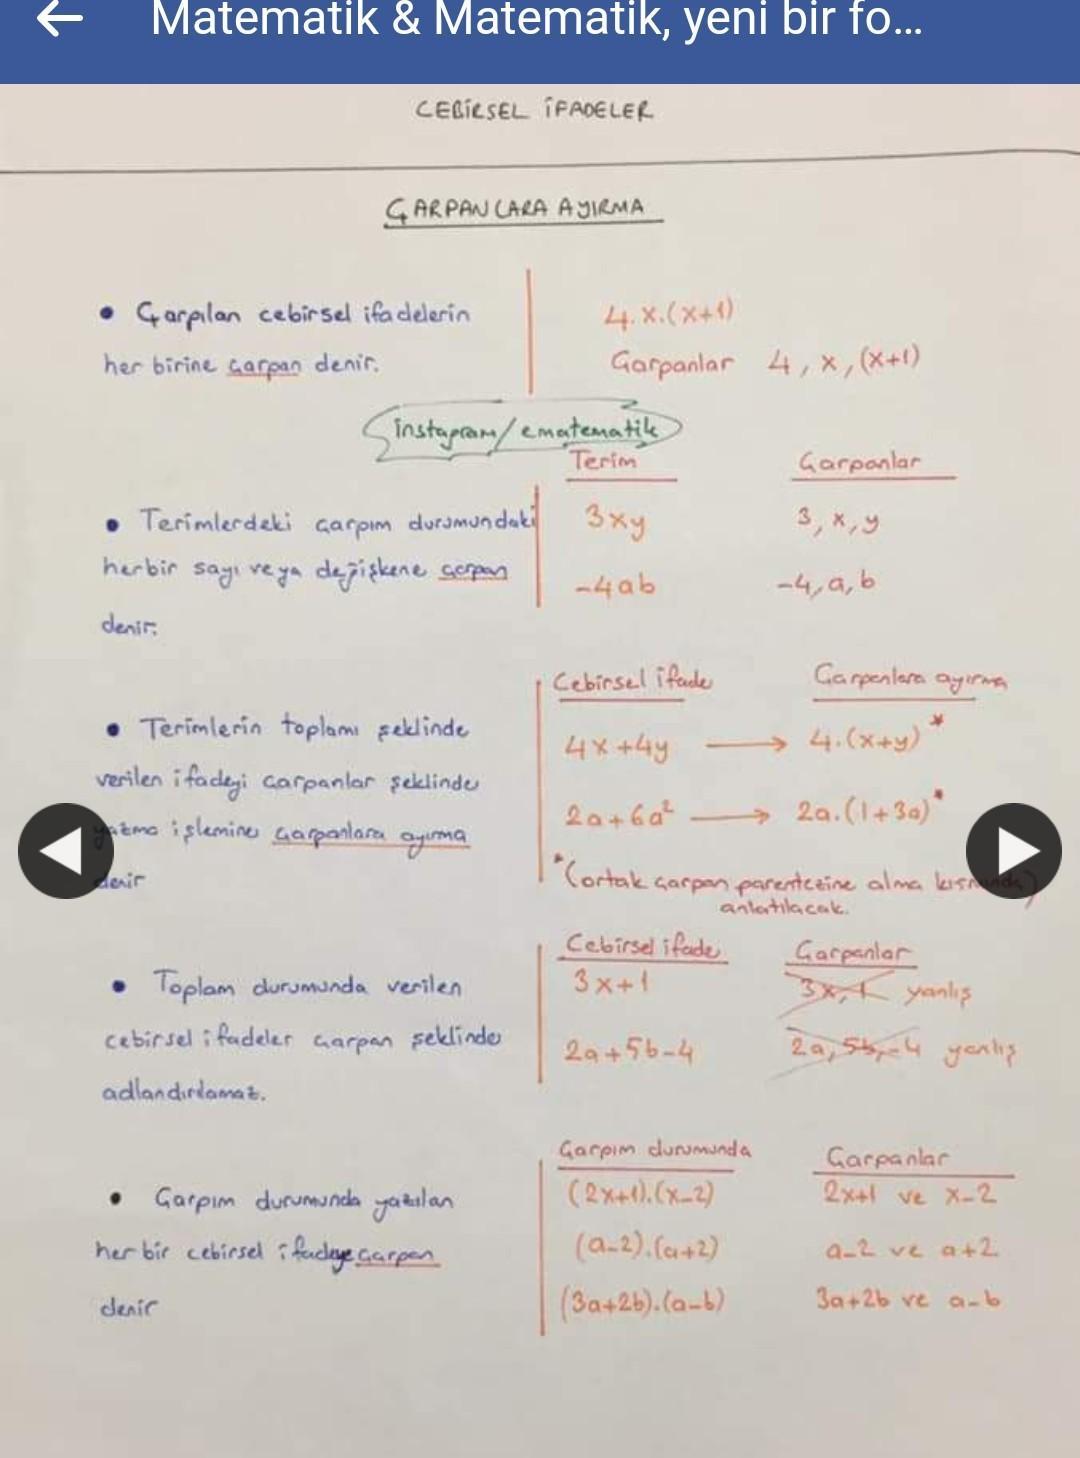 Matematik & Matematik, yeni bir fo...
CEBİRSEL İFADELER
ÇARPANLARA AYIRMA
• Çarpılan cebirsel ifadelerin
her birine çarpan denir.
4.x.(x+1)
Çarpanlar 4, x, (x+1)
instagram/ematematik
• Terimlerdeki çarpım durumundaki
herbir sayı veya değişkene çarpan
denir.
Terim Çarpanlar
3xy 3, x, y
-4ab -4, a, b
• Terimlerin toplamı şeklinde
verilen ifadeyi çarpanlar şeklinde
yazma işlemine çarpanlara ayırma
denir
Cebirsel ifade Çarpanlara ayırma
4x+4y → 4.(x+y)*
2a+6a² → 2a.(1+3a)*
*(ortak çarpan parantezine alma kısmında)
anlatılacak.
• Toplam durumunda verilen
cebirsel ifadeler çarpan şeklinde
adlandırılamaz.
Cebirsel ifade Çarpanlar
3x+1 3x, 1 yanlış
2a+5b-4 2a, 5b, -4 yanlış
• Çarpım durumunda yazılan
her bir cebirsel ifadeye çarpan
denir
Çarpım durumunda Çarpanlar
(2x+1).(x-2) 2x+1 ve x-2
(a-2).(a+2) a-2 ve a+2
(3a+2b).(a-b) 3a+2b ve a-b